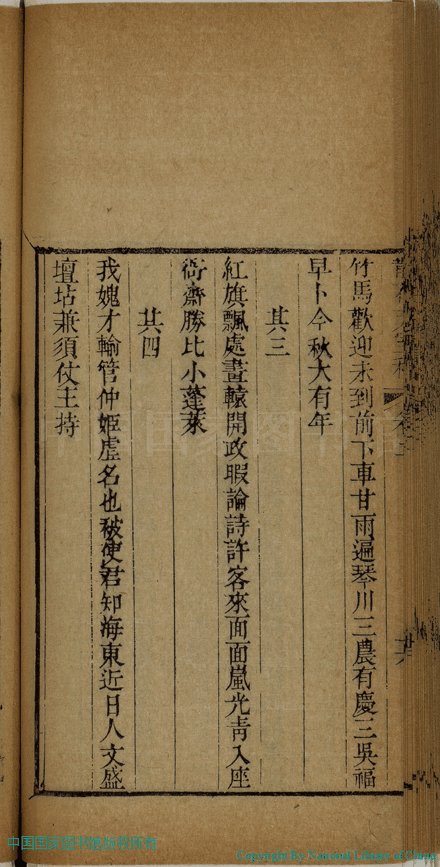 竹馬歡迎未到前下車甘雨遍琴川三農有慶三吳福
早卜今秋大有年
其三
紅旗飄處畫轅開政暇論詩許客來面面嵐光靑入座
衙齋勝比小蓬萊
其四
我媿才輸管仲姬虛名也被使君知海東近日人文盛
壇坫兼須仗主持
中国国家图书馆版权所有
Copyright By National Library of China